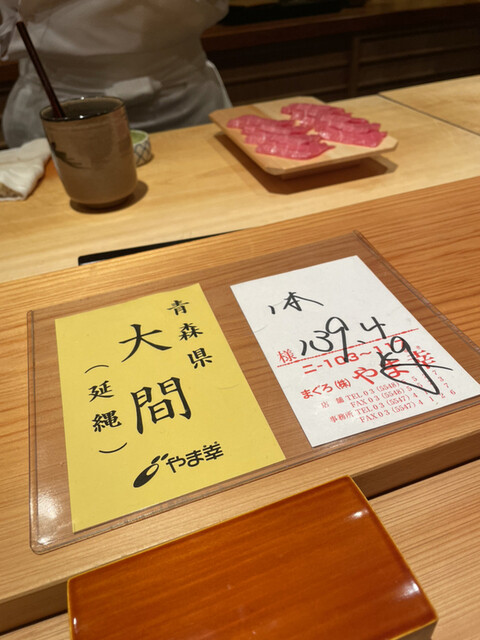 青森県
大間
（延縄）
やま幸
本
139.4
様
ニ-103~
まぐろ(株)やま幸
店舗 TEL 03 (5548)
FAX 03 (5548)
事務所 TEL 03 (5547) 4
FAX 03 (5547) 4126